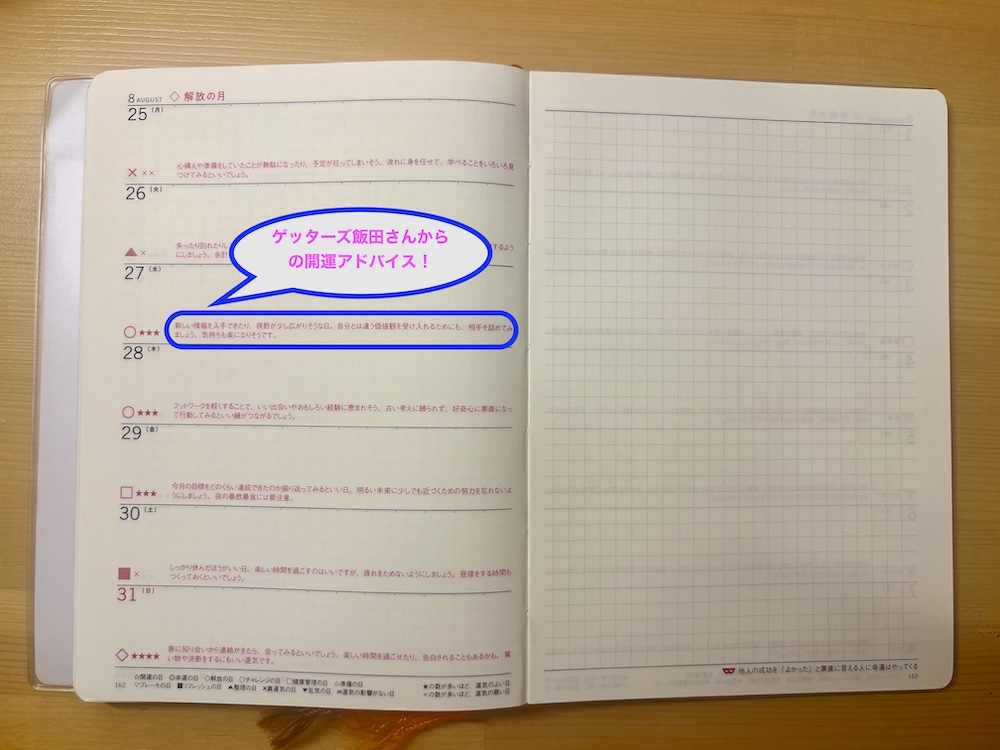 8 AUGUST ◇ 解放の月
25 (月)
心構えや準備をしていたことが無駄になったり、予定が狂ってしまいそう。流れに身を任せて、学べることをいろいろ見
✕ ✕✕ つけてみるといいでしょう。
26 (火)
失ったり別れたりし
▲ ✕ にしましょう。余計
27 (水)
ゲッターズ飯田さんから
の開運アドバイス！
新しい情報を入手できたり、視野が少し広がりそうな日。自分とは違う価値観を受け入れるためにも、相手を認めてみ
○ ★★★ ましょう。気持ちも楽になりそうです。
28 (木)
フットワークを軽くすることで、いい出会いやおもしろい経験に恵まれそう。古い考えに縛られず、好奇心に素直になっ
○ ★★★ て行動してみるといい縁がつながるでしょう。
29 (金)
今月の目標をどのくらい達成できたのか振り返ってみるといい日。明るい未来に少しでも近づくための努力を忘れないよ
□ ★★★ うにしましょう。夜の暴飲暴食には要注意。
30 (土)
しっかり休んだほうがいい日。楽しい時間を過ごすのはいいですが、疲れをためないようにしましょう。昼寝をする時間も
■ ✕ つくっておくといいでしょう。
31 (日)
急に知り合いから連絡がきたら、会ってみるといいでしょう。楽しい時間を過ごせたり、告白されることもあるかも。買
◇ ★★★★ い物や決断をするにもいい運気です。
☆開運の日 ◎幸運の日 ◇解放の日 ○チャレンジの日 □健康管理の日 △準備の日 ★の数が多いほど、運気のよい日
162 ▽ブレーキの日 ■リフレッシュの日 ▲整理の日 ✕裏運気の日 ▼乱気の日 ＝運気の影響がない日 ✕の数が多いほど、運気の悪い日
他人の成功を「よかった」と素直に言える人に幸運はやってくる
163